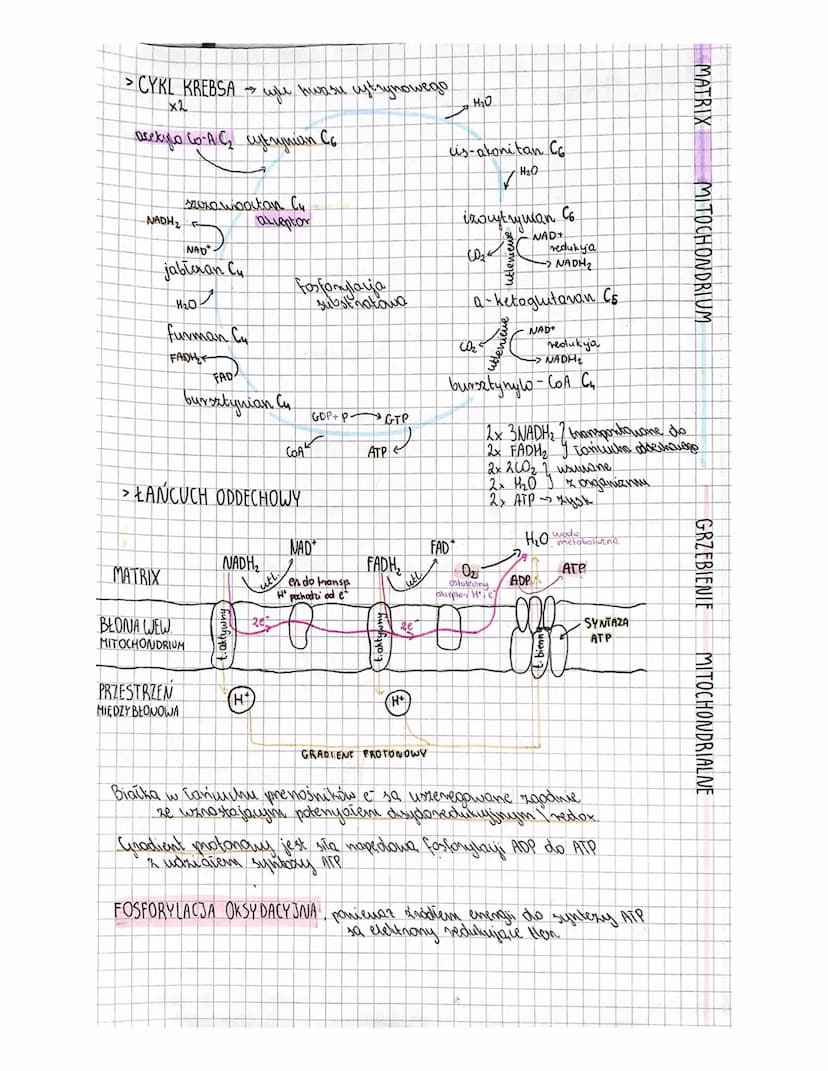 > CYKL KREBSA → cykl kwasu cytrynowego
x2
H₂O
acetylo Co-A C₂ cytrynian C₆
cis-akonitan C₆
H₂O
szczawiooctan C₄
akceptor
izocytrynian C₆
NADH₂
NAD⁺
CO₂
utlenienie
NAD+
redukcja
NADH₂
jabłczan C₄
Fosforylacja
substratowa
H₂O
a-ketoglutaran C₅
fumaran C₄
FADH₂
FAD
CO₂
utlenienie
NAD⁺
redukcja
NADH₂
bursztynian C₄
bursztynylo-CoA C₄
GDP+P → GTP
CoA
ATP
2x 3NADH₂ } transportowane do
2x FADH₂ } łańcucha oddechowego
2x 2CO₂ } usuwane
2x H₂O } z organizmu
2x ATP → zysk
> ŁAŃCUCH ODDECHOWY
MATRIX MITOCHONDRIUM
GRZEBIENIE MITOCHONDRIALNE
MATRIX
NADH₂
NAD⁺
utl.
endo transp.
H⁺ pochodzi od e⁻
FADH₂
FAD⁺
utl.
O₂
ostateczny
akceptor H⁺ i e⁻
H₂O woda
metaboliczna
ADP
ATP
BŁONA WEW.
MITOCHONDRIUM
t.aktywny
2e⁻
t.aktywny
2e⁻
t. bierny
SYNTAZA
ATP
PRZESTRZEŃ
MIĘDZYBŁONOWA
H⁺
H⁺
GRADIENT PROTONOWY
Białka w łańcuchu przenośników e⁻ są uszeregowane zgodnie
ze wzrastającym potencjałem oksydoredukcyjnym \ redox
Gradient protonowy jest siłą napędową fosforylacji ADP do ATP
z udziałem syntazy ATP
FOSFORYLACJA OKSYDACYJNA, ponieważ źródłem energii do syntezy ATP
są elektrony redukujące tlen